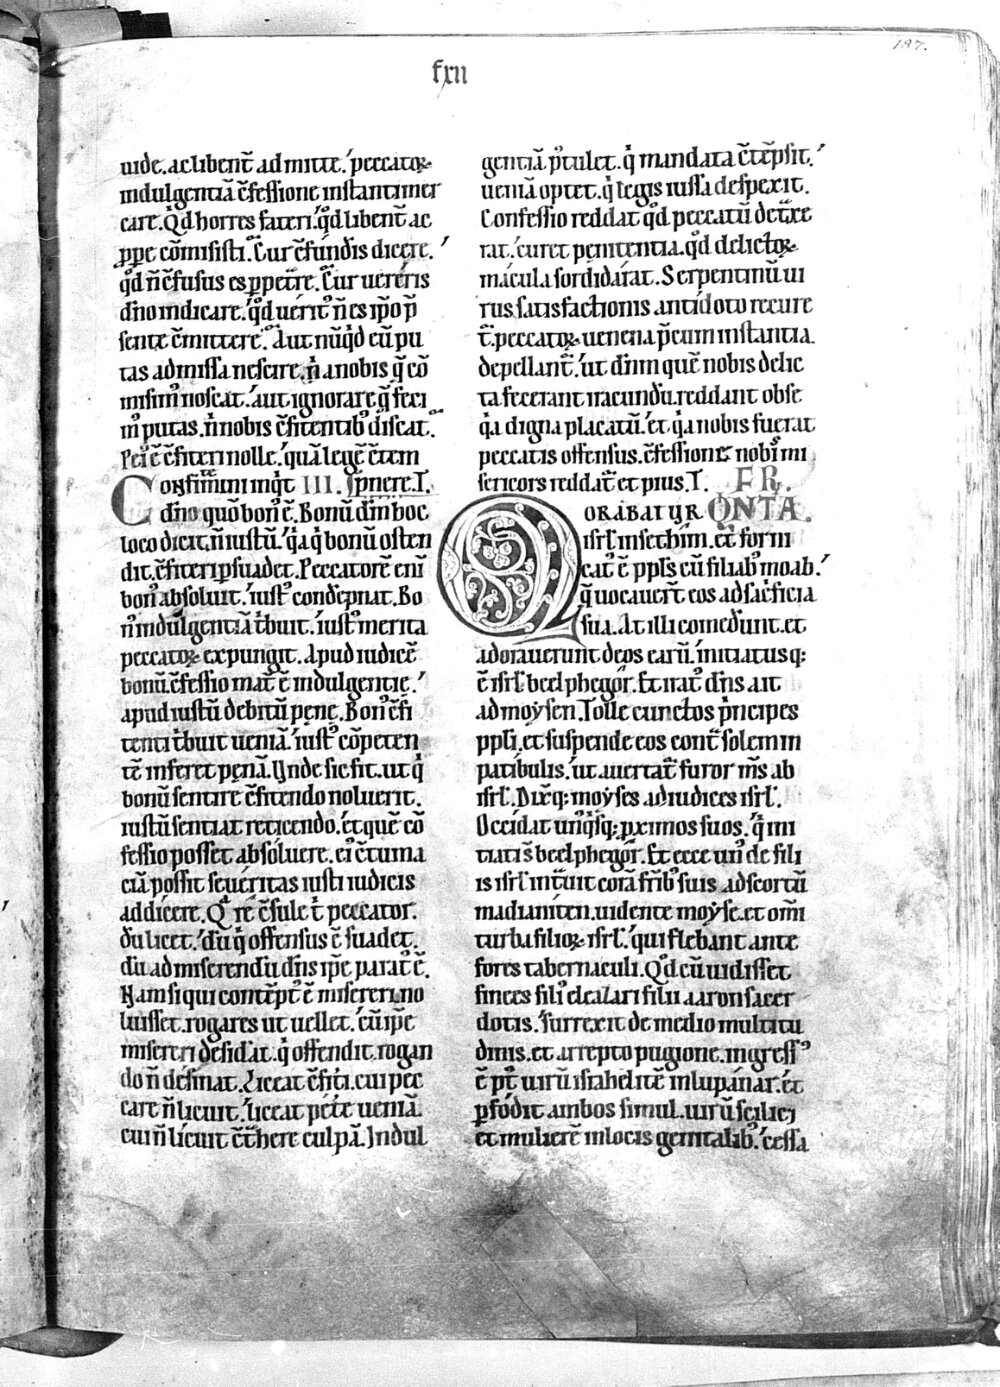 187.
fxii
uide. ac libent̃ admitte. peccatoꝝ
indulgentiã c̃fessione instanti mer
care. Qd̕ horres fateri. qd̕ libent̃ ac
ꝓpe cõmisisti. Cur c̃fundis dicere.
qd̕ ñ c̃fusus es ꝑpet̃re. Cur uereris
dño indicare. qd̕ uerit᾿ ñ es ip̃o p̃
sente c̃mittere. Aut nũqd̕ eũ pu
tas admissa nescire. ñ a nobis q̃ cõ
misim᾿ noscat. aut ignorare q̃ feci
m᾿ putas. ñ nobis c̃fitentib᾿ discat.
c̃fiteri nolle. quã legẽ c̃tem
III. I.
Confitemini inqͥt
dño quõ bon᾿ ẽ. Bonũ dñm hoc
loco dicit. ñ iustũ. qͥa qͥ bonũ osten
dit. c̃fiteri ꝑsuadet. Peccatorẽ eni᷑
bon᾿ absoluit. iust᾿ condẽpnat. Bo
n᾿ indulgentiã tͥbuit. iust᾿ merita
peccatoꝝ expungit. Apud iudicẽ
bonũ. c̃fessio mat̃ ẽ indulgentie.
apud iustũ debitũ pene. Bon᾿ c̃fi
tenti tͥbuit ueniã. iust᾿ cõpeten
tẽ inferet penã. Unde sic fit. ut qͥ
bonũ sentire c̃fitendo noluerit.
iustũ sentiat reticendo. et quẽ cõ
fessio posset absoluere. ei᾿ c̃tuma
ciã possit seueritas iusti iudicis
addicere. Qͣ rẽ c̃sule t̃ peccator.
dũ licet. dũ qͥ offensus ẽ suadet.
dũ ad miserendũ dñs ip̃e parat᾿ ẽ.
Nam si qui contẽpt᾿ ẽ misereri no
luisset. rogares ut uellet. cũ ip̃e
misereri desidãt. qͥ offendit. rogan
do ñ desinat. Liceat c̃fiti. cui pec
care ñ licuit. liceat pẽte ueniã.
cui ñ licuit c̃t̃here culpã. Indul
gentiã ꝓtulet. qͥ mandata c̃tẽpsit.
ueniã optet. qͥ legis iussa despexit.
Confessio reddat qd̕ peccatũ det̃xe
rat. curet penitentia. qd̕ delictoꝝ
macula sordidarat. Serpentinũ ui
rus satisfactionis antidoto recure
t᷑. peccatoꝝ uenena p̃cum instantia
depellant᷑. ut dñm quẽ nobis delic
ta fecerant iracundũ. reddant obse
qͥa digna placatũ. et qͥa nobis fuerat
peccatis offensus. c̃fessione nobis mi
sericors reddat᷑ et pius. T. FR.
QNTA.
MORABATUR
isrl̕ in sethim. et forni
cat᾿ ẽ ppl̕s cũ filiab᾿ moab.
q̃ uocauert̃ eos ad sacͥficia
sua. At illi comedunt. et
adorauerunt deos earũ. initiatusq:
ẽ isrl̕ beelphegor. Et irat᾿ dñs ait
ad moysen. Tolle cunctos pͥncipes
ppl̕i. et suspende eos cont̃ solem in
patibulis. ut auertat᷑ furor m̃s ab
isrl̕. Dixitq: moyses ad iudices isrl̕.
Occidat un᾿qͥsq: ꝓximos suos. qͥ ini
tiati s̃ beelphegor. Et ecce un᾿ de fili
is isrl̕ int̃uit corã fr̃ib᾿ suis ad scortũ
madianiten. uidente moyse. et om̃i
turba filioꝝ isrl̕. qui flebant ante
fores tabernaculi. Qd̕ cũ uidisset
finees fili᾿ eleazari filii aaron sacer
dotis. surrexit de medio multitu
dinis. et arrepto pugione. ingress᾿
ẽ p᾿t uirũ israhelitẽ in lupanar. et
ꝑfodit ambos simul. uirũ scilicet
et mulierẽ in locis genitalib᾿. cessa